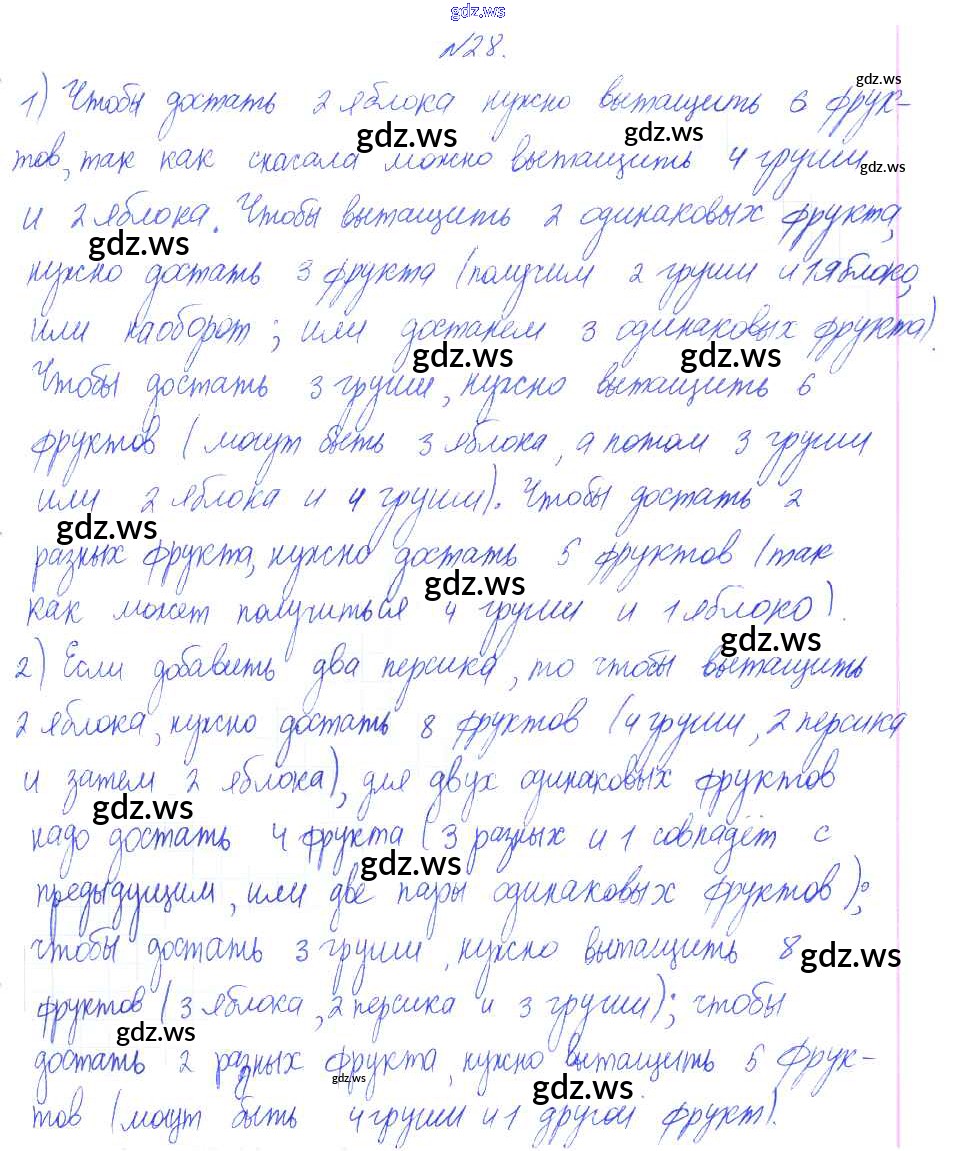 gdz.ws
№28.
1) Чтобы достать 2 яблока нужно вытащить 6 фрук-
gdz.ws
gdz.ws
gdz.ws
тов, так как сначала можно вытащить 4 груши
gdz.ws
и 2 яблока. Чтобы вытащить 2 одинаковых фрукта,
gdz.ws
нужно достать 3 фрукта (получим 2 груши и 1 яблоко,
или наоборот; или достанем 3 одинаковых фрукта).
gdz.ws
gdz.ws
Чтобы достать 3 груши, нужно вытащить 6
фруктов (могут быть 3 яблока, а потом 3 груши
или 2 яблока и 4 груши). Чтобы достать 2
gdz.ws
разных фрукта, нужно достать 5 фруктов (так
gdz.ws
как может получиться 4 груши и 1 яблоко).
gdz.ws
2) Если добавить два персика, то чтобы вытащить
2 яблока, нужно достать 8 фруктов (4 груши, 2 персика
и затем 2 яблока), для двух одинаковых фруктов
gdz.ws
надо достать 4 фрукта (3 разных и 1 совпадёт с
gdz.ws
предыдущим, или две пары одинаковых фруктов);
чтобы достать 3 груши, нужно вытащить 8
gdz.ws
фруктов (3 яблока, 2 персика и 3 груши); чтобы
gdz.ws
достать 2 разных фрукта, нужно вытащить 5 фрук-
gdz.ws
gdz.ws
тов (могут быть 4 груши и 1 другой фрукт).